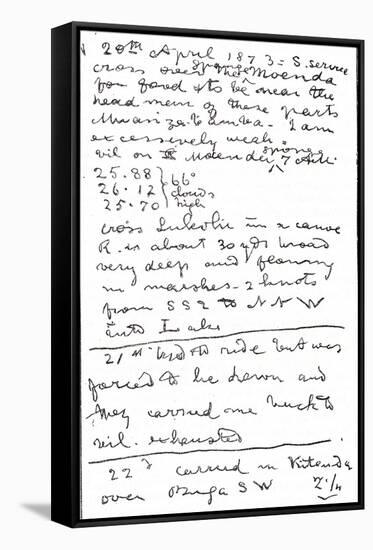 20th April 1873 = S. service
cross over the sponge Moenda
for food & to be near the
head men of these parts
Moanzabamba - I am
excessively weak
vil on Moenda sponge 7 A.M.
25.88
26.12 } 66°
25.70 clouds high
cross Lokulu in a canoe
R. is about 30 yds broad
very deep and flowing
in marshes - 2 knots
from SSE to NNW
into Lake
21st tried to ride but was
forced to lie down and
they carried me back to
vil. exhausted
22d carried in Kitanda
over Buga SW 2 1/4